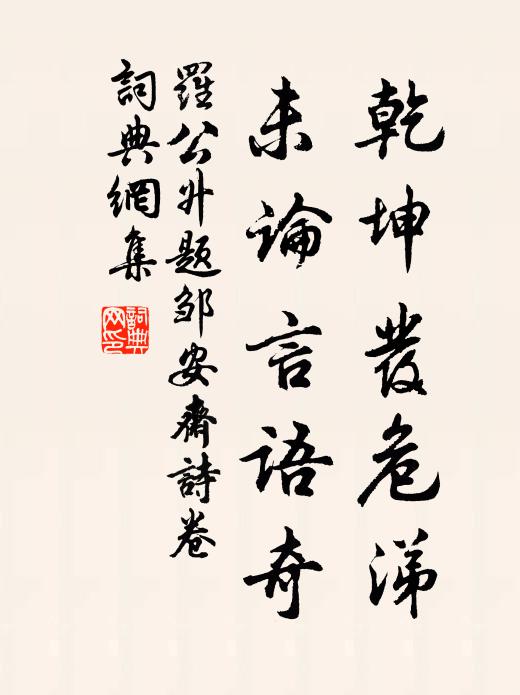 乾坤發危涕
未論言語奇
羅公升題邹安齋詩卷
詞典網集
詞典网印